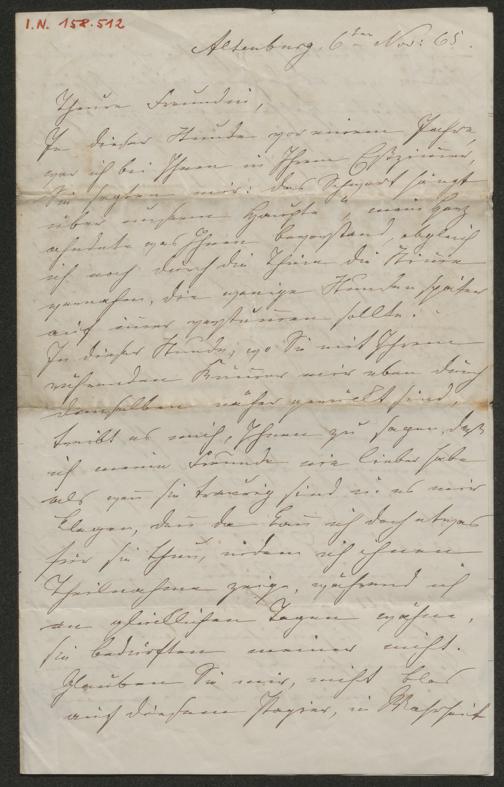 I.N. 158.512
Altenburg, 6ten Nov: 65.
Theure Freundin,
In dieser Stunde vor einem Jahre,
war ich bei Ihnen in Ihrem Eßzimmer,
Sie sagten mir: das Schwert hängt
über unserem Haupte", mein Herz
ahndete was Ihnen bevorstand, obgleich
ich noch durch die Thüre die Stimme
vernahm, die wenige Stunden später
auf immer verstummen sollte!
In dieser Stunde, wo Sie mit Ihrem
Kummer mir eben durch
denselben näher gerückt sind,
treibt es mich, Ihnen zu sagen, daß
ich meine Freunde nie lieber habe
als wenn sie traurig sind u: es mir
klagen, denn da kann ich doch etwas
für sie thun, indem ich ihnen
Theilnahme zeige, während ich
an glücklichen Tagen wähne,
sie bedürften meiner nicht.
Glauben Sie mir, nicht blos
auf diesem Papier, in Wahrheit